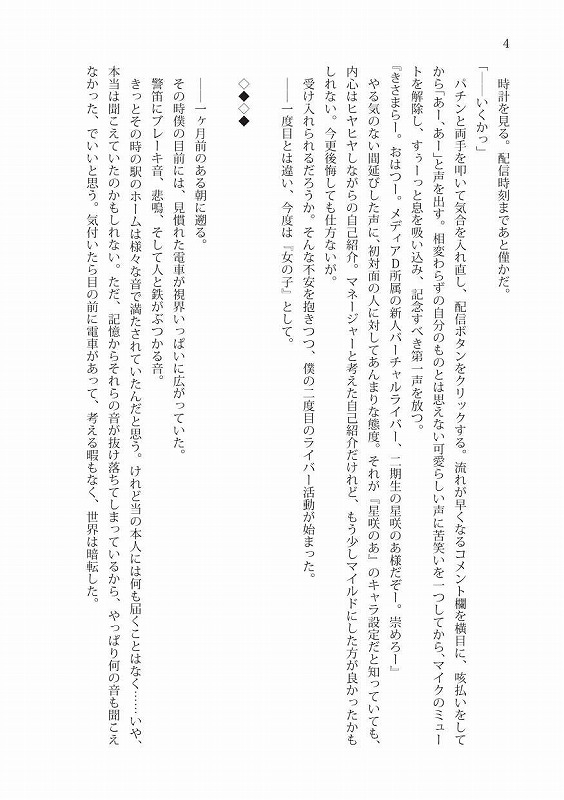 4
時計を見る。配信時刻まであと僅かだ。
「――いくかっ」
パチンと両手を叩いて気合を入れ直し、配信ボタンをクリックする。流れが早くなるコメント欄を横目に、咳払いをして
から「あ、あー」と声を出す。相変わらずの自分のものとは思えない可愛らしい声に苦笑いを一つしてから、マイクのミュー
トを解除し、すぅーっと息を吸い込み、記念すべき第一声を放つ。
『きさまらー。おはつー。メディアD所属の新人バーチャルライバー、二期生の星咲のあ様だぞー。崇めろー』
やる気のない間延びした声に、初対面の人に対してあんまりな態度。それが『星咲のあ』のキャラ設定だと知っていても、
内心はヒヤヒヤしながらの自己紹介。マネージャーと考えた自己紹介だけれど、もう少しマイルドにした方が良かったかも
しれない。今更後悔しても仕方ないが。
受け入れられるだろうか。そんな不安を抱きつつ、僕の二度目のライバー活動が始まった。
――一度目とは違い、今度は『女の子』として。
◇◆◇◆
――一ヶ月前のある朝に遡る。
その時僕の目前には、見慣れた電車が視界いっぱいに広がっていた。
警笛にブレーキ音、悲鳴、そして人と鉄がぶつかる音。
きっとその時の駅のホームは様々な音で満たされていたんだと思う。けれど当の本人には何も届くことはなく……いや、
本当は聞こえていたのかもしれない。ただ、記憶からそれらの音が抜け落ちてしまっているから、やっぱり何の音も聞こえ
なかった、でいいと思う。気付いたら目の前に電車があって、考える暇もなく、世界は暗転した。